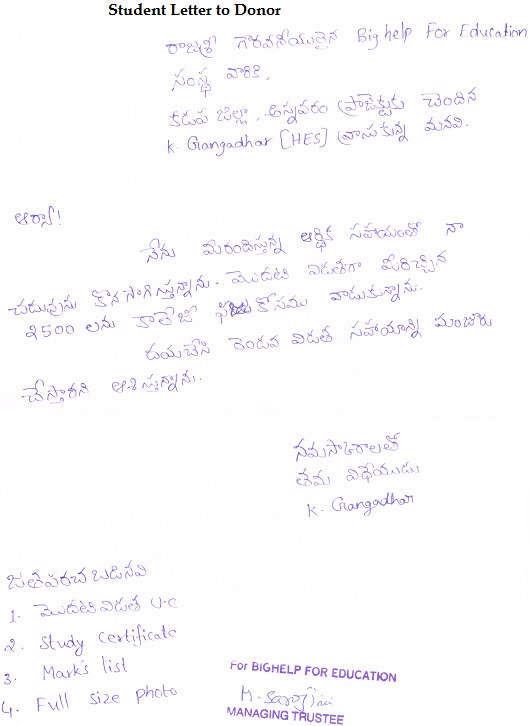 Student Letter to Donor
రాజశ్రీ గౌరవనీయులైన Big help For Education
సంస్థ వారికి,
కడప జిల్లా, అన్నవరం ప్రాజెక్టుకు చెందిన
K. Gangadhar [HES] వ్రాసుకున్న మనవి.
ఆర్యా!
నేను మీరందిస్తున్న ఆర్థిక సహాయంతో నా
చదువును కొనసాగిస్తున్నాను. మొదటి విడతగా మీరిచ్చిన
2500 లను కాలేజీ కోసము వాడుకున్నాను.
దయచేసి రెండవ విడత సహాయాన్ని మంజూరు
చేస్తారని ఆశిస్తున్నాను.
నమస్కారాలతో
తమ విధేయుడు
K. Gangadhar
జతపరచబడినవి
1. మొదటి విడత U.C
2. Study certificate
3. Marks list
4. Full size photo
For BIGHELP FOR EDUCATION
MANAGING TRUSTEE